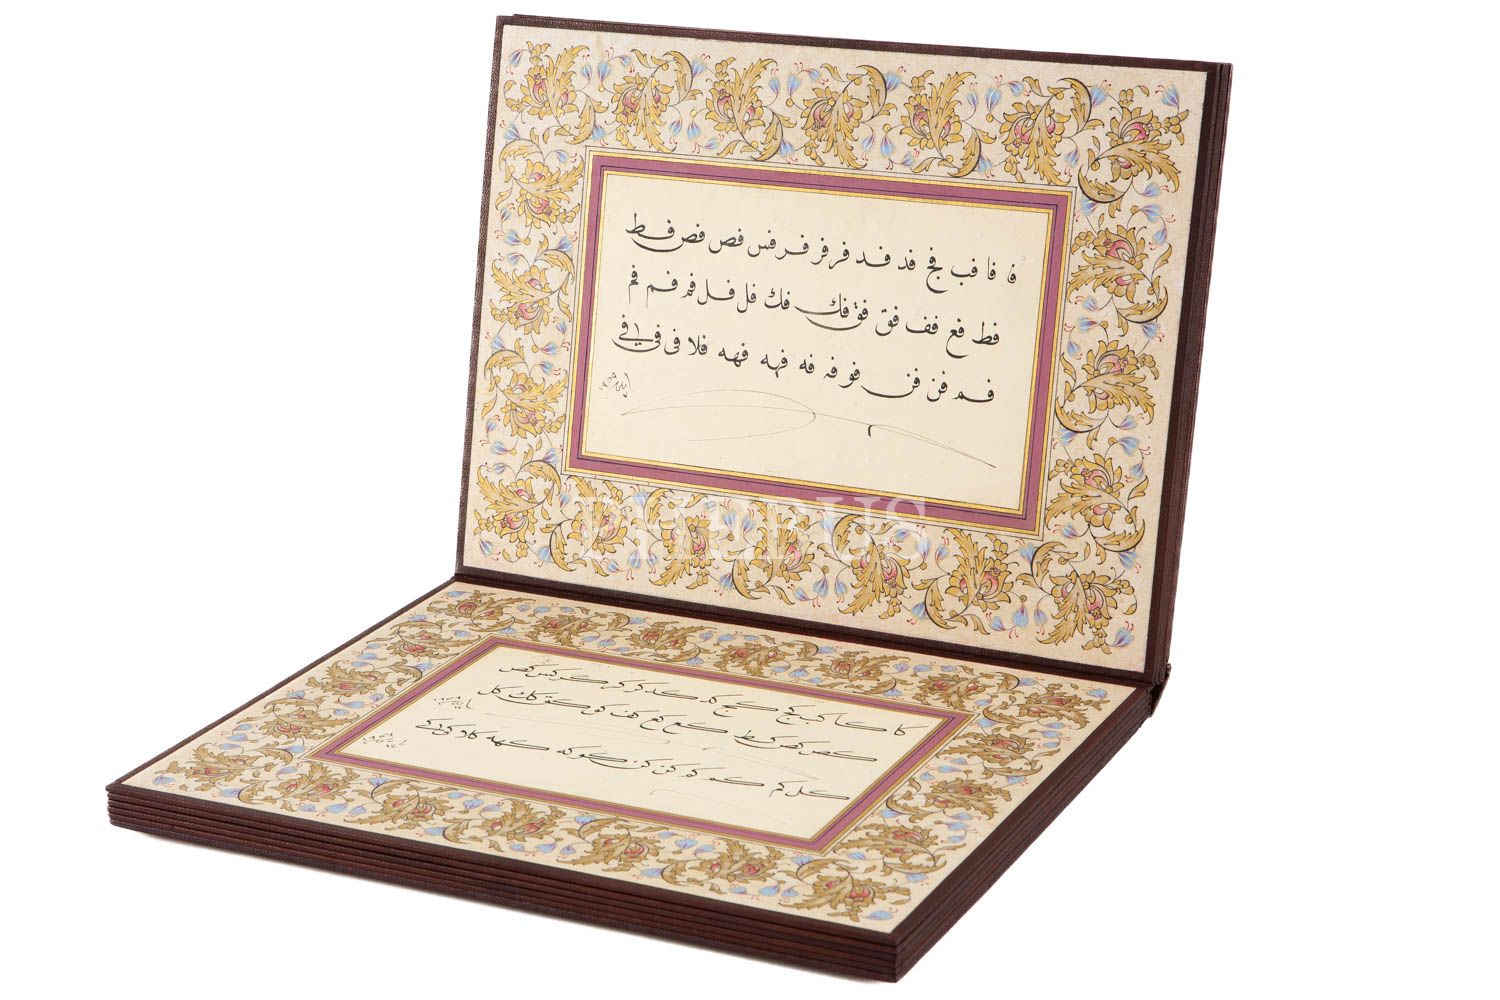 فا فا فب فج فد فد فر فر فر فس فص فص فط
فط فع فف فق فق فك فك فل فل فم فم فم
فم فن فن فو فه فه فهه فهه فلا فى فى فى
كا كا كب كج كج كد كد كر كر كر كس كص
كص كص كط كع كع كف كو كق كك كل
كل كم كو كن كن كو كه كهه كلا كى كى
PHEBUS